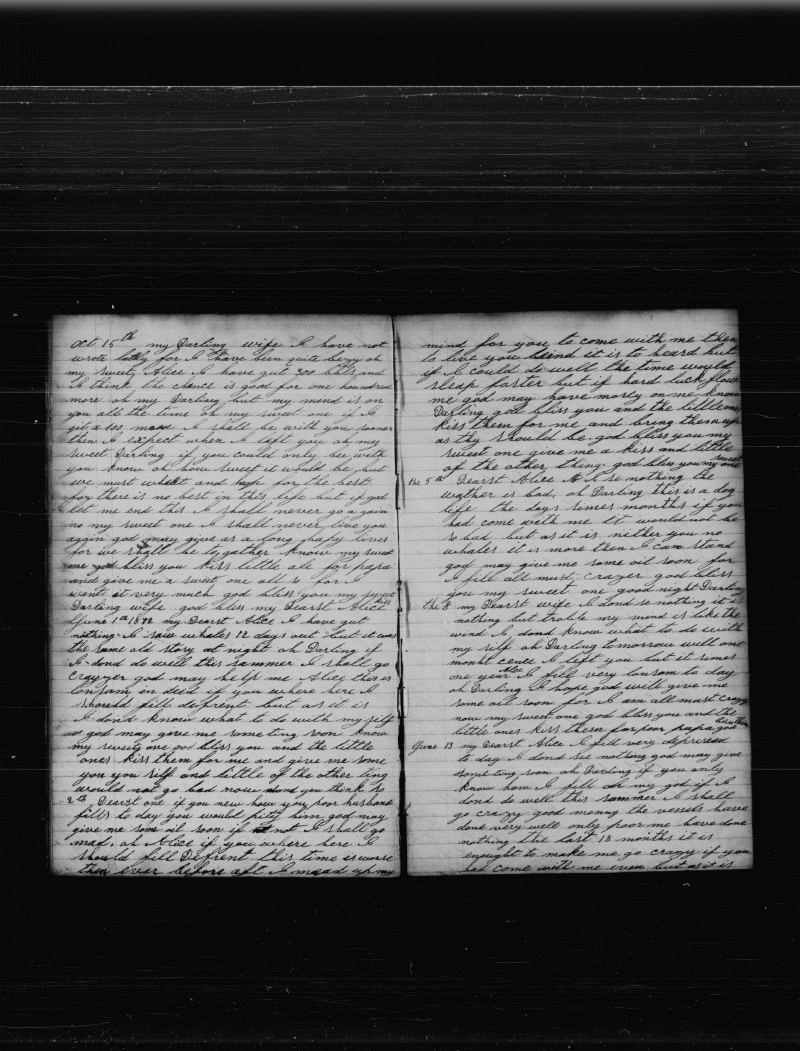 Oct 15th my Darling wife I have not
wrote lately for I have been quite bezy oh
my sweet Alice I have gut 300 bbls and
I think the chance is good for one hundred
more oh my Darling but my mind is on
you all the time oh my sweet one if I
git a 100 more I shall be with you sooner
then I expect when I left you oh my
sweet Darling if you could only bee with
you know oh how sweet it would be but
we must and hope for the best
for there is no best in this life but if god
let me end this I shall never go a gain
no my sweet one I shall never live you
again god may give as a long hapy lives
for we shall be to gather know my sweet
one god bliss you kiss little ale for papa
and give me a sweet one all so for I
want it very much god bless you my sweet
Darling wife god bliss my Dearst Alice
June 1th 1872 my Dearst Alice I have gut
nothing I saw whales 12 days out but it was
the same old story at night oh Darling if
I dond do well this sammer I shall go
crayzer god may help me Alice this is
lonsam in deed if you where here I
shoread fill defrent but as it is
I dond know what to do with my self
god may give me some ting soon know
my sweet one god bliss you and the little
ones kiss them for me and give me some
you you self and little of the other ting
would not go bad now dond you think so
2th Dearst one if you new how you poor husband
fills to day you would pity him god may
give me som oil soon if not I shall go
mad, oh Alice if you where here I
should fill Defrent this time is worse
then ever before aft I mead up my
mind for you to come with me then
to live you beind it is to heard but
if I could do well the time would
sleap faster but if hard luck flow
me god may have marty on me know
Darling god bliss you and the little ones
kiss them for me and bring them up
as thy should be god bless you my
sweet one give me a kiss and little
of the other thing god bless you my sweet one
the 5th Dearst Alice I se nothing the
wather is bad, oh Darling this is a dog
life the days simes months if you
had come with me it would not be
so bad but as it is nither you no
whales it is more then I can stand
god may give some oil soon for
I fill all must crazer god bliss
you my sweet one good night Darling
the 8 my Dearst wife I dond se nothing it is
nothing but troble my mind is like the
wind I dond know what to do with
my self oh Darling tomorrow will one
month cence I left you but it simes
one year Alice I fill very lonsom to day
oh Darling I hope god will give me
some oil soon for I am all must crazy
now my sweet one god bliss you and the
little ones kiss them for poor papa god
June 13 my Dearst Alice I fill very depresed
to day I dond see nothing god may give
some ting soon oh Darling if you only
know how I fill oh my god if I
dond do well this sammer I shall
go crazy good menny the vessels have
done very well only poor me have done
nothing the last 18 months it is
enought to make me go crazy if you
had come with me even but as it is